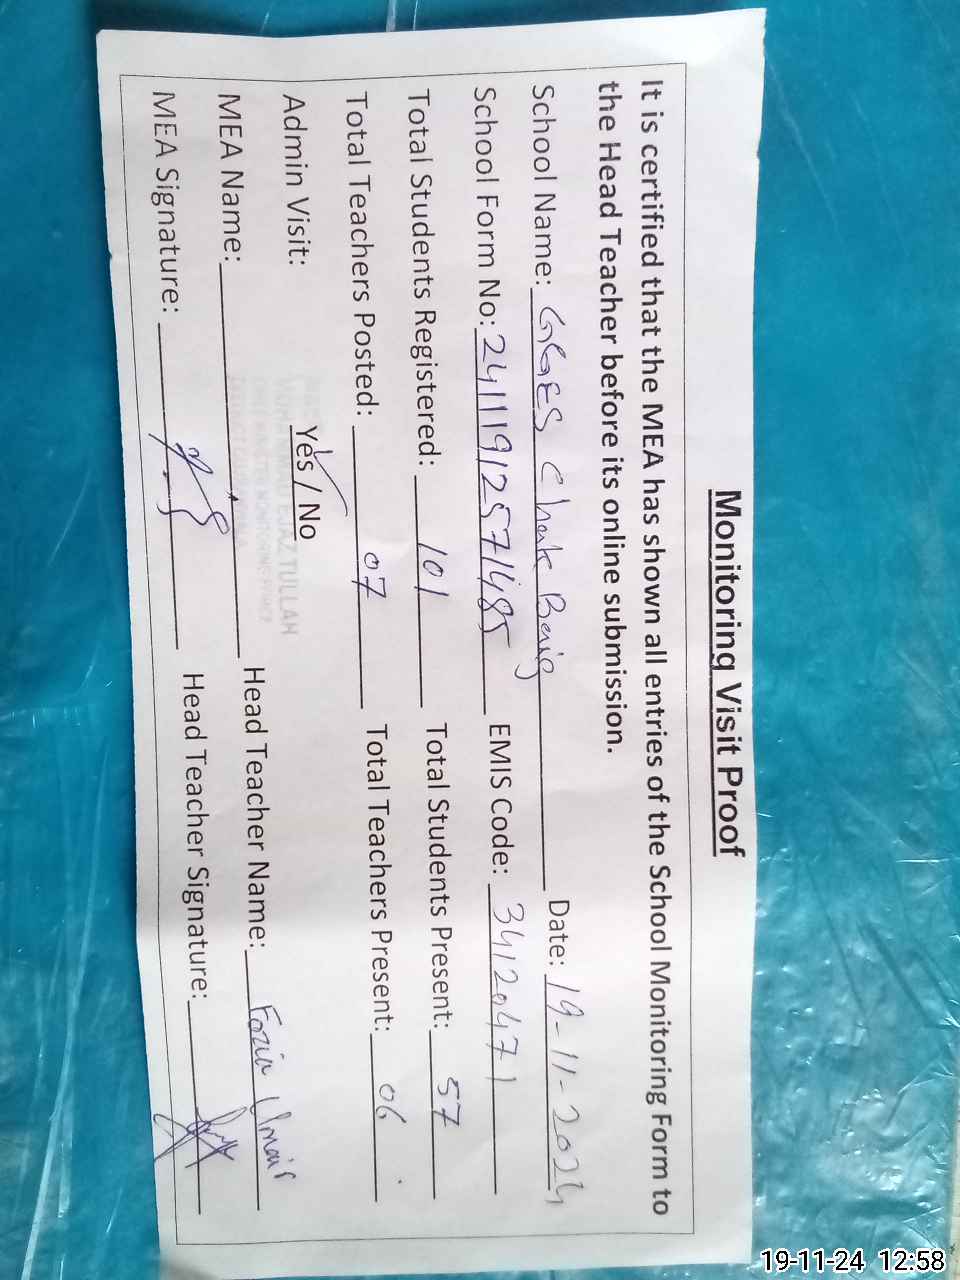 Monitoring Visit Proof
It is certified that the MEA has shown all entries of the School Monitoring Form to
the Head Teacher before its online submission.
School Name: GGES Chak Baig Date: 19-11-2024
School Form No: 24111912571485 EMIS Code: 34120471
Total Students Registered: 101 Total Students Present: 57
Total Teachers Posted: 07 Total Teachers Present: 06
Admin Visit: Yes / No
EJAZ TULLAH
MEA Name: Head Teacher Name: Fozia Umair
MEA Signature: Head Teacher Signature:
19-11-24 12:58